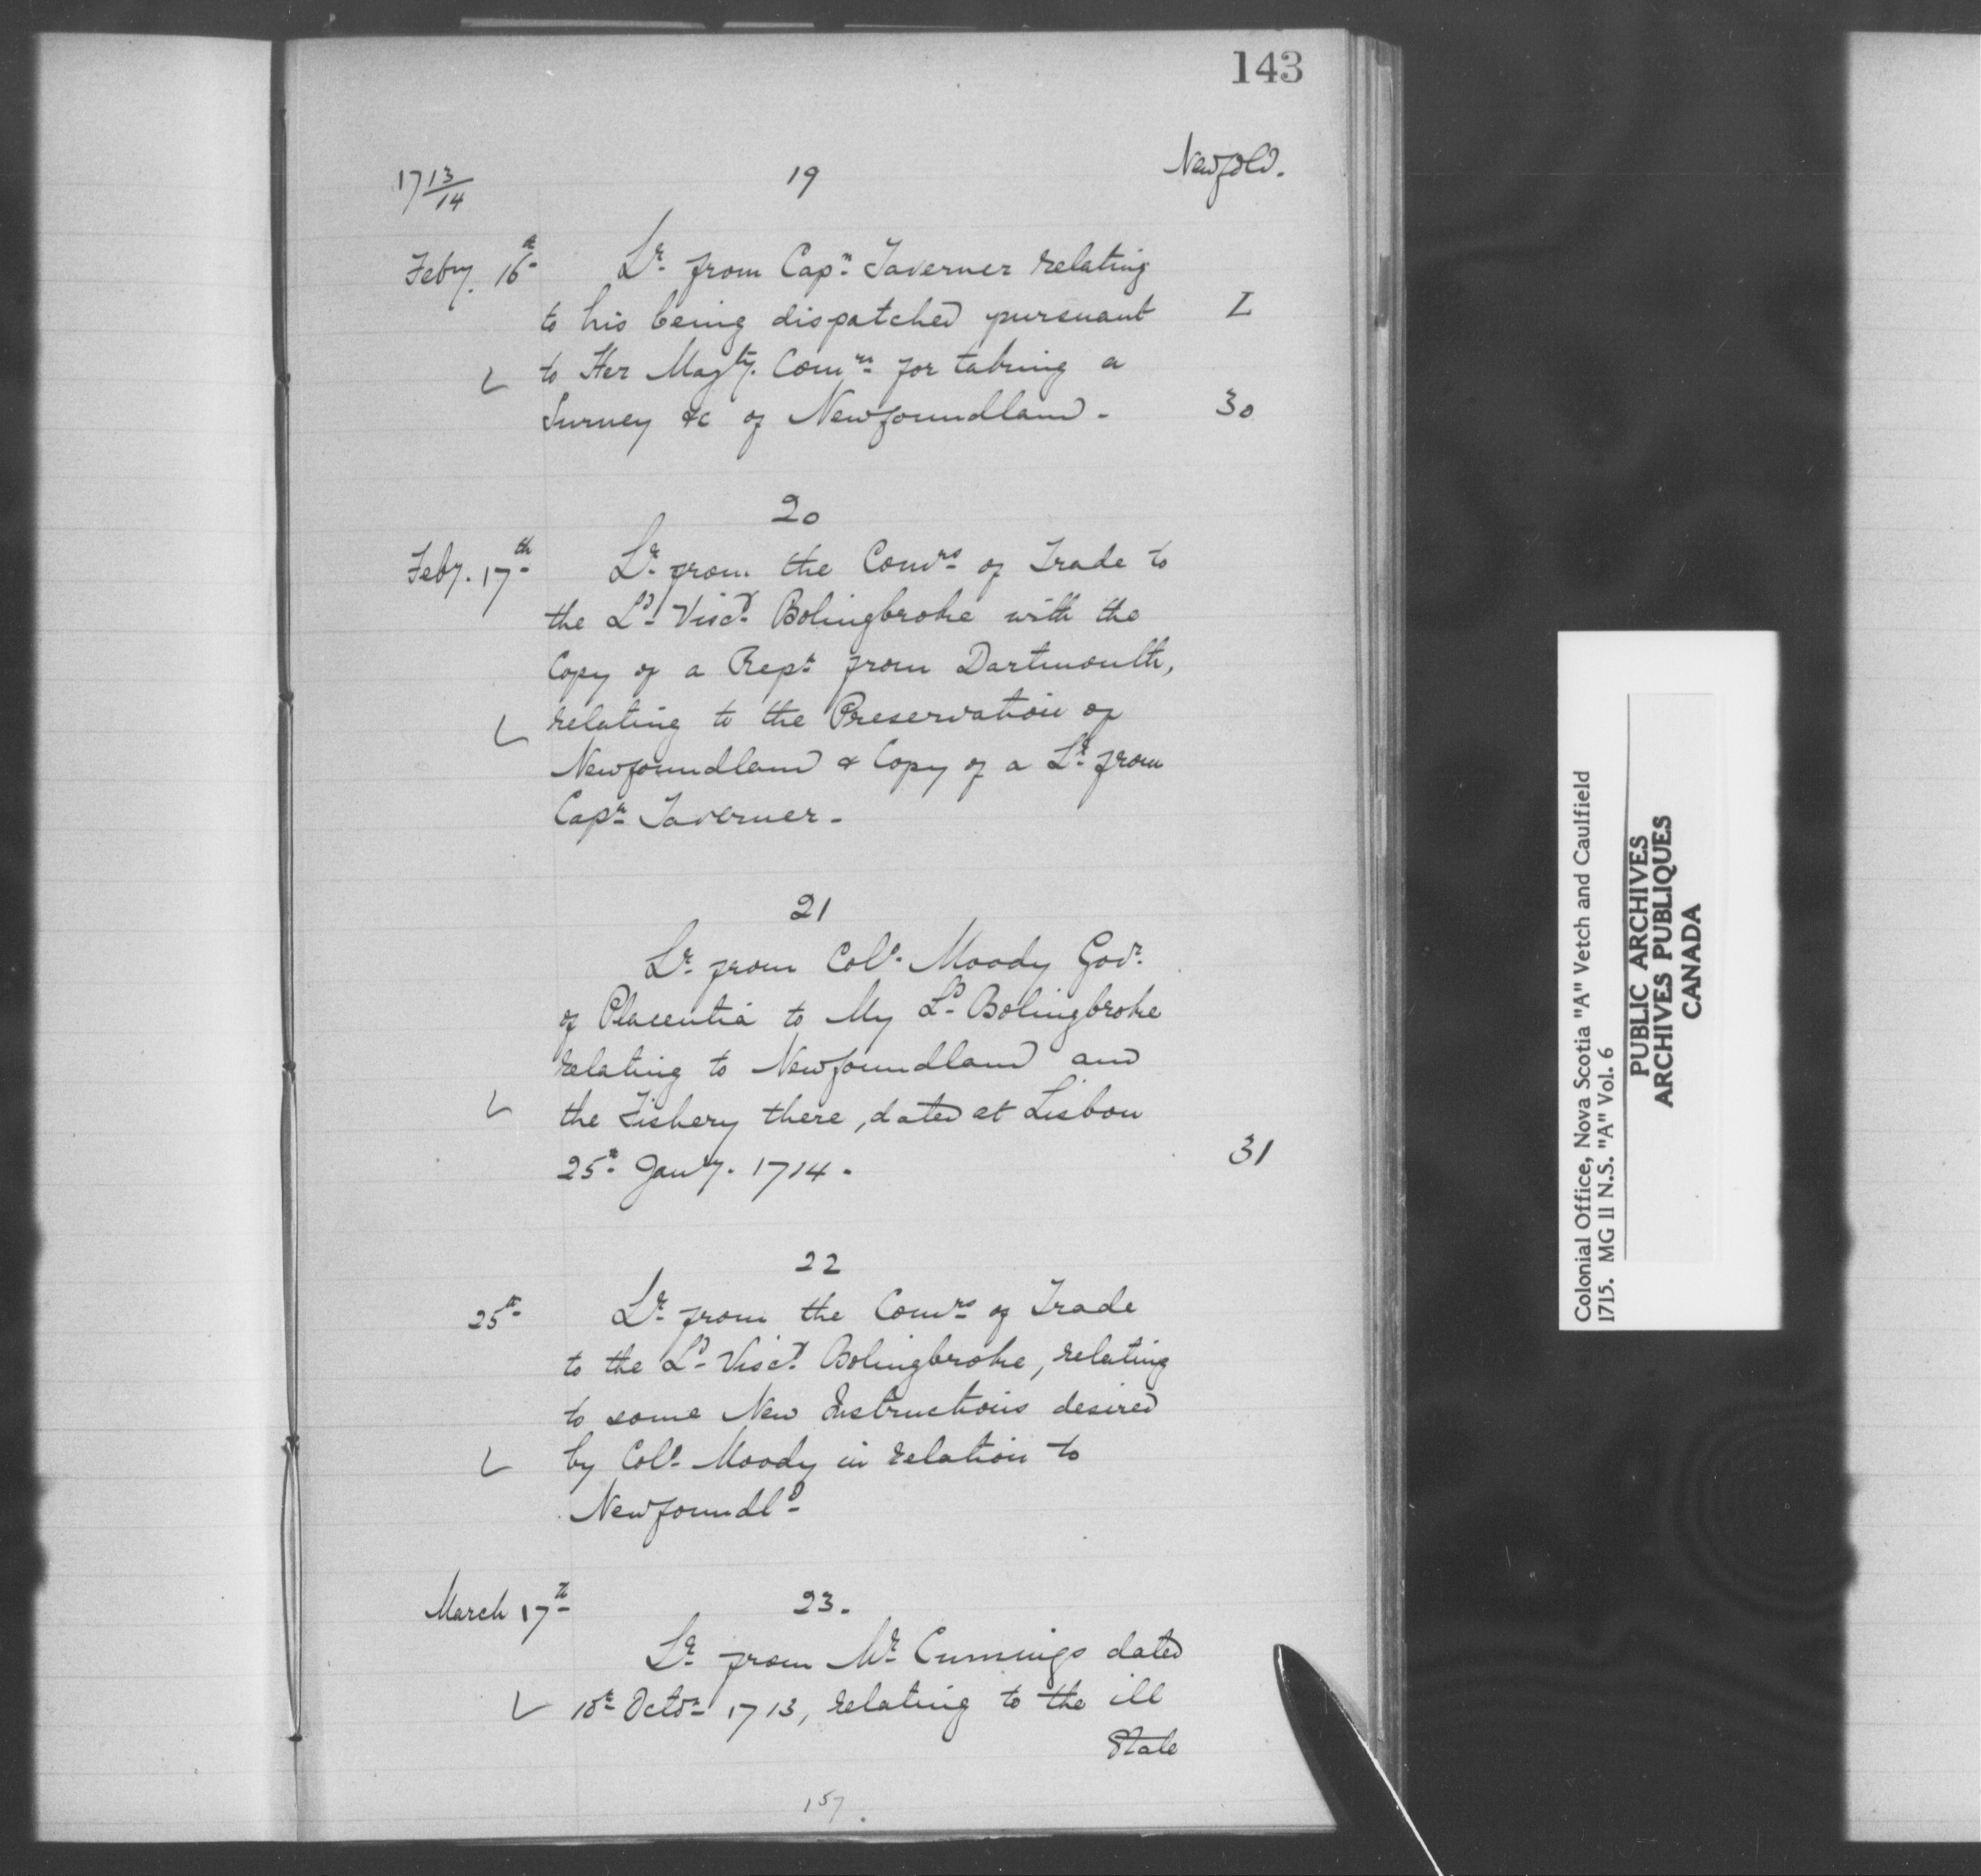 143
Newfdld.
17 13/14
19
Feby. 16th Lr from Capn Taverner relating
to his being dispatched pursuant
L
to Her Majty. Comrs for taking a
Survey &c of Newfoundland.
30
20
Feby. 17th Lr from the Comrs of Trade to
the Ld Visct Bolingbroke with the
Copy of a Rept from Dartmouth,
relating to the Preservation of
Newfoundland & Copy of a Lr from
Capn Taverner.
21
Lr from Colo. Moody Govr.
of Placentia to My Ld Bolingbroke
relating to Newfoundland and
the Fishery there, dated at Lisbon
25th Jany. 1714.
31
22
25th Lr from the Comrs of Trade
to the Ld Visct. Bolingbroke, relating
to some New Instructions desired
by Colo Moody in relation to
Newfoundld
March 17th 23.
Lr from Mr Cummings dated
10th Octor 1713, relating to the ill
State
157.
Colonial Office, Nova Scotia "A" Vetch and Caulfield
1715. MG 11 N.S. "A" Vol. 6
PUBLIC ARCHIVES
ARCHIVES PUBLIQUES
CANADA